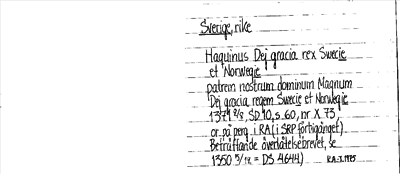 Sverige, rike
Haquinus Dej gracia rex Swecie
et Norwegie
patrem nostrum dominum Magnum
Dej gracia regem Swecie et Norwegie
1371 2/8, SD 10, s 60, nr X 73,
or. på perg. i RA (i SRP förtigånget)
Beträffande överlåtelsebrevet, se
1350 5/12 = DS 4644) RA-I. 1985